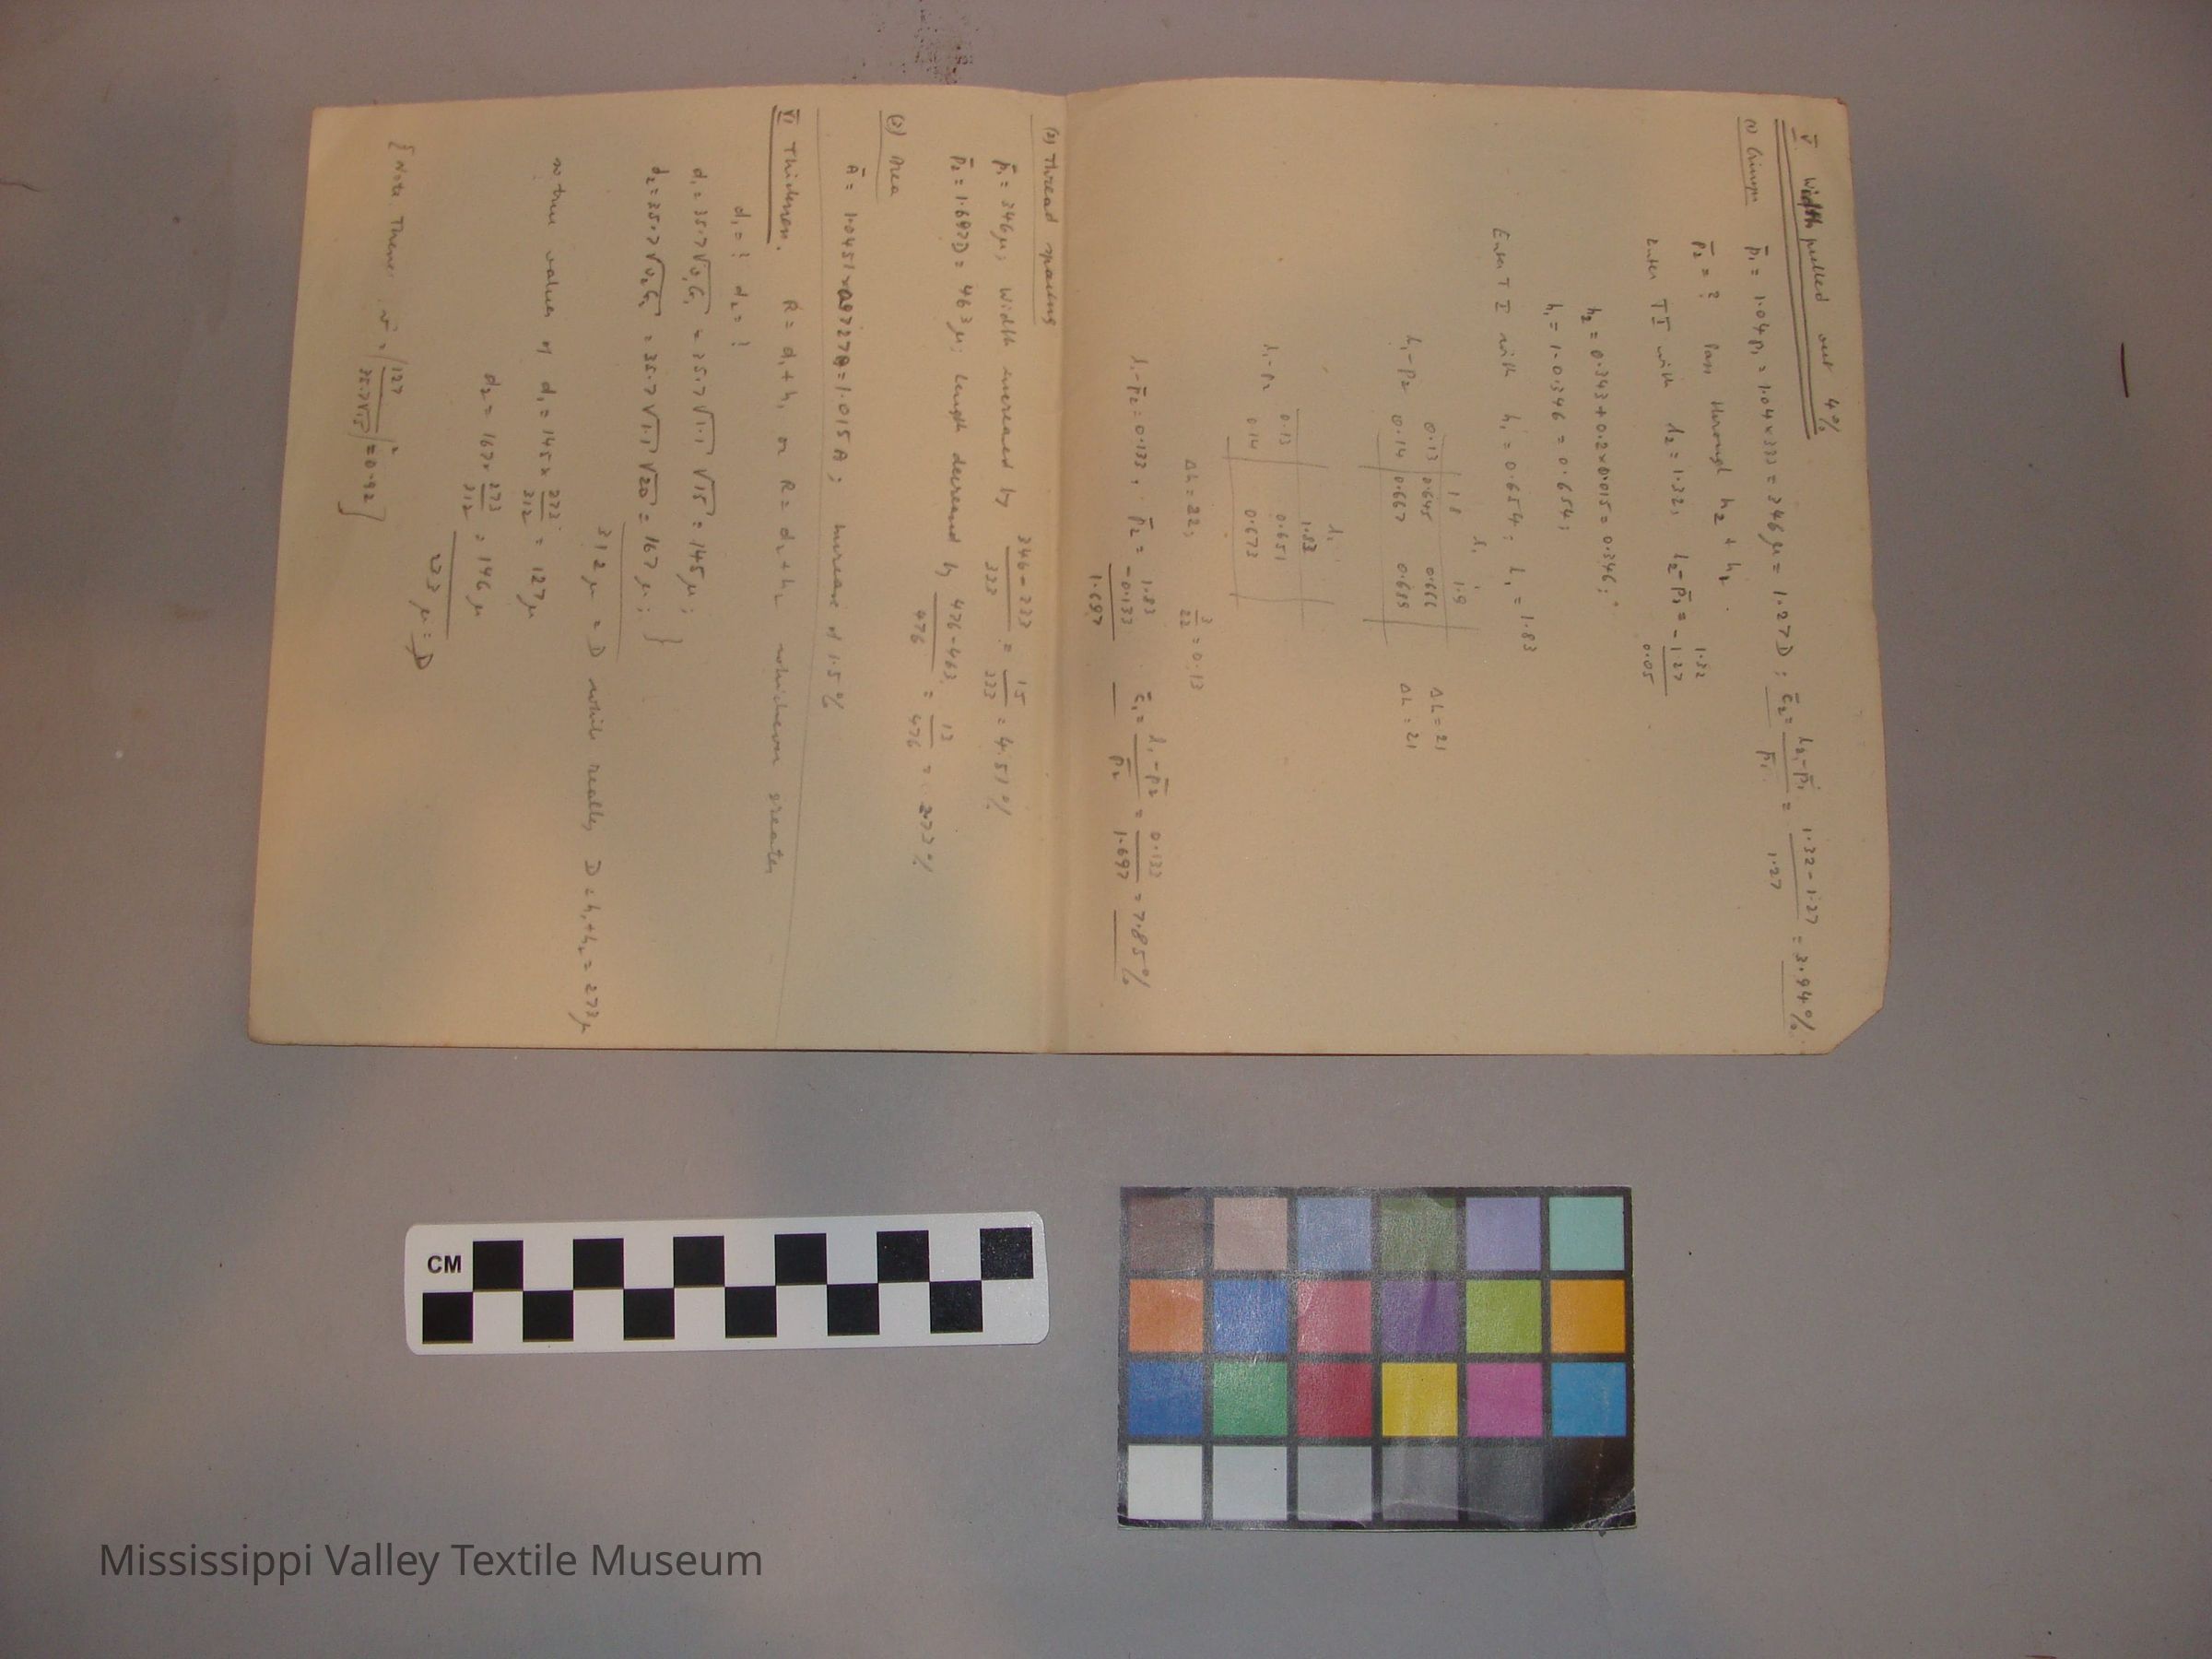 V Width pulled out 4%
(1) Crimps p̄₁ = 1.04p₁ = 1.04 x 333 = 346 µ = 1.27D ; c̄₂ = (l₂ - p̄₁)/p̄₁ = (1.32 - 1.27)/1.27 = 3.94%
p̄₂ = ? Pass through h₂ + h₁.
Enter T I with l₂ = 1.32, l₂ - p̄₁ = 1.32 - 1.27 0.05
h₂ = 0.343 + 0.2 x 0.015 = 0.346 ;
h₁ = 1 - 0.346 = 0.654 ;
Enter T I with h₁ = 0.654 ; l₁ = 1.83
l₁
1.8 1.9
l₁ - p₂ 0.13 0.645 0.666 Δh = 21
0.14 0.667 0.689 Δh = 21
l₁
1.83
l₁ - p₂ 0.13 0.651
0.14 0.673
Δh = 22, 3/22 = 0.13
l₁ - p̄₂ = 0.133, p̄₂ = 1.83 - 0.133 c̄₁ = (l₁ - p̄₂)/p̄₂ = 0.133/1.697 = 7.85%
1.697
(2) Thread spacing
p̄₁ = 346 µ, Width increased by (346 - 333)/333 = 15/333 = 4.51%
p̄₂ = 1.697D = 463 µ ; Length decreased by (476 - 463)/476 = 13/476 = 2.73%
(3) Area
Ā = 1.0451 x 0.9727A = 1.015A ; Increase of 1.5%
VI Thickness. R = d₁ + h₁ or R = d₂ + h₂ whichever greater
d₁ = ? d₂ = ?
d₁ = 35.7 √v₁G₁ = 35.7 √1.1 √15 = 145 µ ;
d₂ = 35.7 √v₂G₂ = 35.7 √1.1 √20 = 167 µ ; }
312 µ = D while really D = h₁ + h₂ = 273 µ
so true values of d₁ = 145 x 273/312 = 127 µ
d₂ = 167 x 273/312 = 146 µ
273 µ = D
{Note. Then v = (127/35.7√15)² = 0.92}
CM
Mississippi Valley Textile Museum